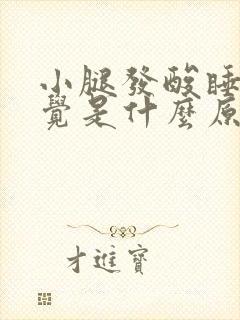 小腿發酸睡
覺是什麼原
才進寶